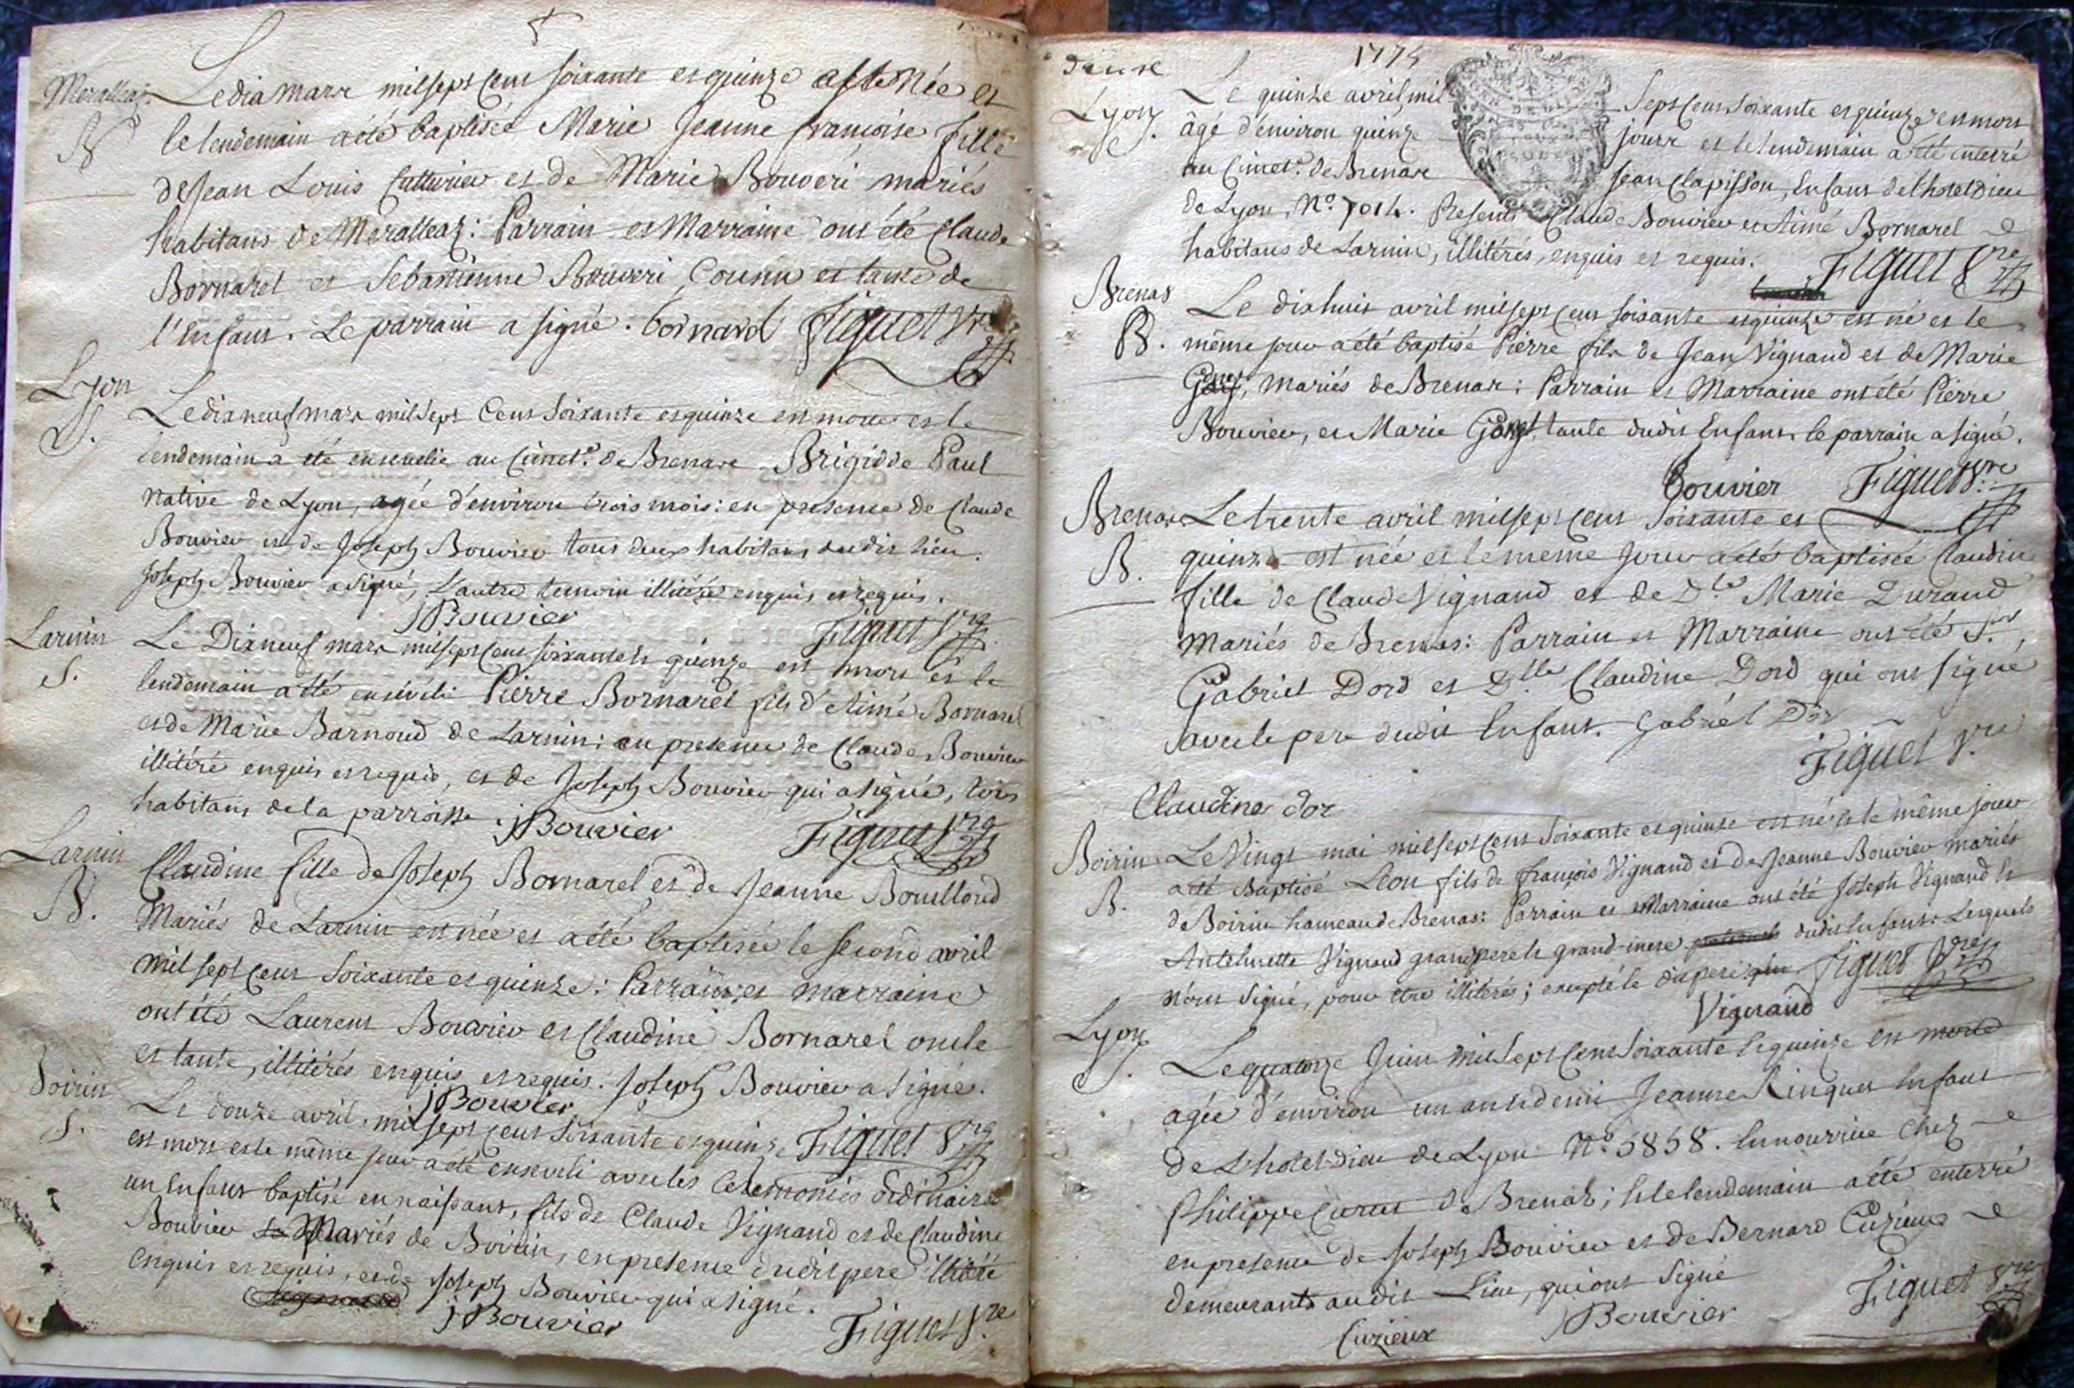 Meralleaz.
B
Le dix mars mil sept cent soixante et quinze est née et
le lendemain a été baptisée Marie Jeanne françoise fille
de Jean Louis Cutturier et de Marie Bouveri mariés
habitans de Meralleaz: Parrain et Marraine ont été Claude
Bornarel et Sebastienne Bouveri, Cousin et tante de
l'Enfant. Le parrain a signé. bornard Figuet Vre
Lyon
S.
Le dix neuf mars mil sept Cent Soixante et quinze est morte et le
lendemain a été ensevelie au Cimet.e de Brenax Brigidde Paul
native de Lyon, agée d'environ trois mois: en presence de Claude
Bouvier et de Joseph Bouvier tous deux habitans dudit lieu.
Joseph Bouvier a signé, L'autre temoin illitéré enquis et requis.
JBouvier Figuet Vre
Larnin
S.
Le Dix neuf mars mil sept cent soixante et quinze est mort et le
lendemain a été enséveli Pierre Bornarel fils d'Aimé Bornarel
et de Marie Barnoud de Larnin: en presence de Claude Bouvier
illitéré enquis et requis, et de Joseph Bouvier qui a signé, tous
habitans de la parroisse. JBouvier Figuet Vre
Larnin
B.
Claudine fille de Joseph Bornarel et de Jeanne Bouilloud
Mariés de Larnin est née et a été baptisée le second avril
mil sept cent soixante et quinze: Parrain et marraine
ont été Laurent Bouvier et Claudine Bornarel oncle
et tante, illitérés enquis et requis. Joseph Bouvier a signé.
JBouvier Figuet Vre
Boirin
S.
Le douze avril, mil sept cent soixante et quinze
est mort et le même jour a été enseveli avec les Ceremonies ordinaires
un Enfant baptisé en naissant, fils de Claude Vignaud et de Claudine
Bouvier Mariés de Boirin, en presence dudit pere illitéré
enquis et requis, et de Joseph Bouvier qui a signé.
JBouvier Figuet Vre
deuxe
1775
Lyon
S.
Le quinze avril mil Sept Cent Soixante et quinze est mort
âgé d'environ quinze jours et le lendemain a été enterré
au Cimet.e de Brenax Jean Clapisson, Enfant de l'hotel Dieu
de Lyon, N.o 7014. Présents Claude Bouvier et Aimé Bornarel
habitans de Larnin, illitérés, enquis et requis. Figuet Vre
Brenas
B.
Le dix huit avril mil sept cent soixante et quinze est né et le
même jour a été baptisé Pierre fils de Jean Vignaud et de Marie
mariés de Brenax: Parrain et Marraine ont été Pierre
Bouvier, et Marie tante dudit Enfant, le parrain a signé.
bouvier Figuet Vre
Brenax
B.
Le trente avril mil sept cent soixante et
quinze est née et le meme jour a été baptisée Claudine
fille de Claude Vignaud et de D.lle Marie Durand
Mariés de Brenas: Parrain et Marraine ont été S.r
Gabriel Dord et D.lle Claudine Dord qui ont signé
avec le pere dudit Enfant. Gabriél Dor
Figuet Vre
Claudine dor
Boirin
B.
Le Vingt mai mil sept cent Soixante et quinze est né et le même jour
a été Baptisé Léon fils de françois Vignaud et de Jeanne Bouvier mariés
de Boirin hameau de Brenas: Parrain et Marraine ont été Joseph Vignaud et
Antelmette Vignaud grand pere et grand-mere dudit Enfant: Lesquels
n'ont signé, pour être illitérés; excepté le dit pere Figuet Vre
Vignaud
Lyon
S.
Le quatorze Juin mil Sept Cent Soixante et quinze est morte
agée d'environ un an et demi Jeanne Ringuet Enfant
de L'hotel-dieu de Lyon N.o 5858. En nourrice chez
Philippe Curtet de Brenax; et le lendemain a été enterré
en presence de Joseph Bouvier et de Bernard Cuzieux
demeurants audit Lieu, qui ont signé
Cuzieux JBouvier Figuet Vre